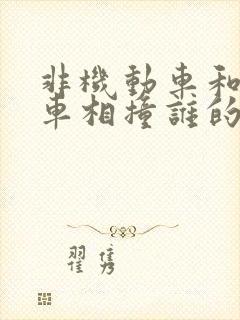 非機動車和
車相撞誰的
翟隽